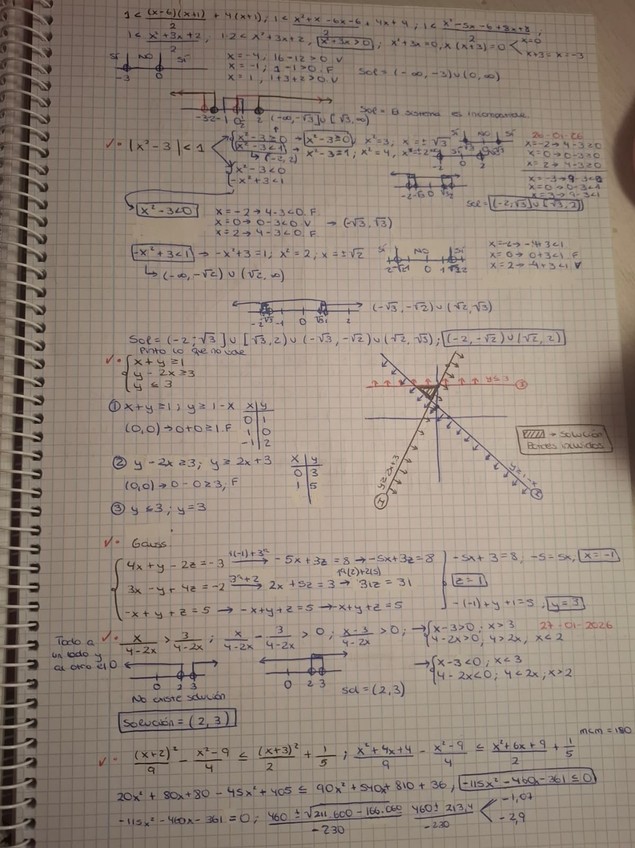 1 < (x-6)(x+1)/2 + 4(x+1); 1 < x²+x-6x-6/2 + 4x+4; 1 < x²-5x-6+8x+8/2;
1 < x²+3x+2/2, 1·2 < x²+3x+2, x²+3x>0; x²+3x=0, x(x+3)=0 x=0 x+3; x=-3
SÍ NO SÍ x=-4, 16-12>0. V
-3 0 x=-1; 1-1>0. F Sol=(-∞,-3)∪(0,∞)
x=1, 1+3+2>0. V
Sol= El sistema es incompatible
✓• |x²-3|<1 x²-3≥0 → x²-3≥0, x²=3, x=±√3
x²-3<1 → x²-3=1, x²=4, x=±2
(-2,2)
x²-3<0
-x²+3<1
26-01-26
x=-2→4-3≥0
x=0→0-3≥0
x=2→4-3≥0
Sol=(-2;√3]∪[√3,2)
x²-3<0 x=-2→4-3<0. F
x=0→0-3<0. V → (-√3,√3)
x=2→4-3<0. F
-x²+3<1 → -x²+3=1; x²=2, x=±√2 SÍ NO SÍ
x=-2→-4+3<1
x=0→0+3<1. F
x=2→-4+3<1. V
↳(-∞,-√2)∪(√2,∞)
(-√3,-√2)∪(√2,√3)
Sol=(-2;√3]∪[√3,2)∪(-√3,-√2)∪(√2,√3); (-2,-√2)∪(√2,2)
Pinto lo que no vale
✓• x+y≥1
y-2x≥3
y≤3
① x+y≥1; y≥1-x x y
(0,0)→0+0≥1. F 0 1
1 0
-1 2
② y-2x≥3; y≥2x+3 x y
(0,0)→0-0≥3; F 0 3
1 5
③ y≤3; y=3
→ Solución
Bordes incluidos
✓• Gauss
4x+y-2z=-3 1ª(-1)+3ª → -5x+3z=8 → -5x+3z=8 -5x+3=8, -5=5x, x=-1
3x-y+4z=-2 3ª+2 → 2x+5z=3 → 31z=31 z=1
-x+y+z=5 → -x+y+z=5 → -x+y+z=5 -(-1)+y+1=5, y=3
27-01-2026
Todo a un lado y al otro el 0
✓• x/4-2x > 3/4-2x; x/4-2x - 3/4-2x > 0; x-3/4-2x > 0; → x-3>0; x>3
4-2x>0; 4>2x, x<2
→ x-3<0; x<3
4-2x<0; 4<2x; x>2
0 2 3 0 2 3
No existe solución Sol=(2,3)
Solución=(2,3)
✓• (x+2)²/9 - x²-9/4 ≤ (x+3)²/2 + 1/5; x²+4x+4/9 - x²-9/4 ≤ x²+6x+9/2 + 1/5 mcm=180
20x²+80x+80-45x²+405 ≤ 90x²+540x+810+36, -115x²-460x-361≤0
-115x²-460x-361=0; 460±√211.600-166.060/-230 460±213,4/-230 -1,07
-2,9